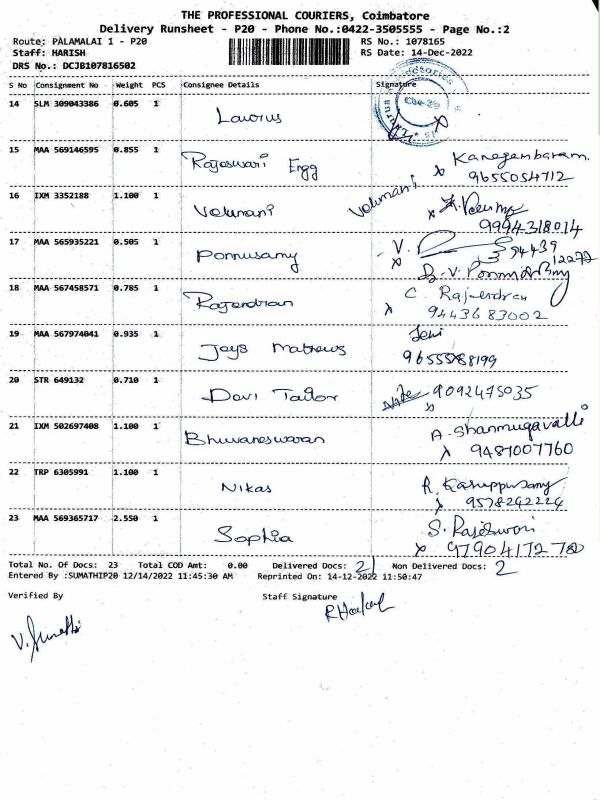 THE PROFESSIONAL COURIERS, Coimbatore
Delivery Runsheet - P20 - Phone No.:0422-3505555 - Page No.:2
Route: PALAMALAI 1 - P20 RS No.: 1078165
Staff: HARISH RS Date: 14-Dec-2022
DRS No.: DCJB107816502
S No Consignment No Weight PCS Consignee Details Signature
14 SLM 309043386 0.605 1 Laurus
15 MAA 569146595 0.855 1 Rajeswari Engg
9655054712
16 IXM 3352188 1.100 1 Velumani Velumani
9994318014
17 MAA 565935221 0.505 1 Ponnusamy V. 94439
12272
18 MAA 567458571 0.785 1 Rajendran C. Rajendran
9443683002
19 MAA 567974041 0.935 1 Jays Mathews Jeni
9655588199
20 STR 649132 0.710 1 Davi Tailor 9092475035
21 IXM 502697408 1.100 1 Bhuvaneswaran A. Shanmugavalli
9487007760
22 TRP 6305991 1.100 1 Nikas R. Karuppusamy
9578242224
23 MAA 569365717 2.550 1 Sophia S. Rajeswari
Total No. Of Docs: 23 Total COD Amt: 0.00 Delivered Docs: 21 Non Delivered Docs: 2
Entered By :SUMATHIP20 12/14/2022 11:45:30 AM Reprinted On: 14-12-2022 11:50:47
Verified By Staff Signature